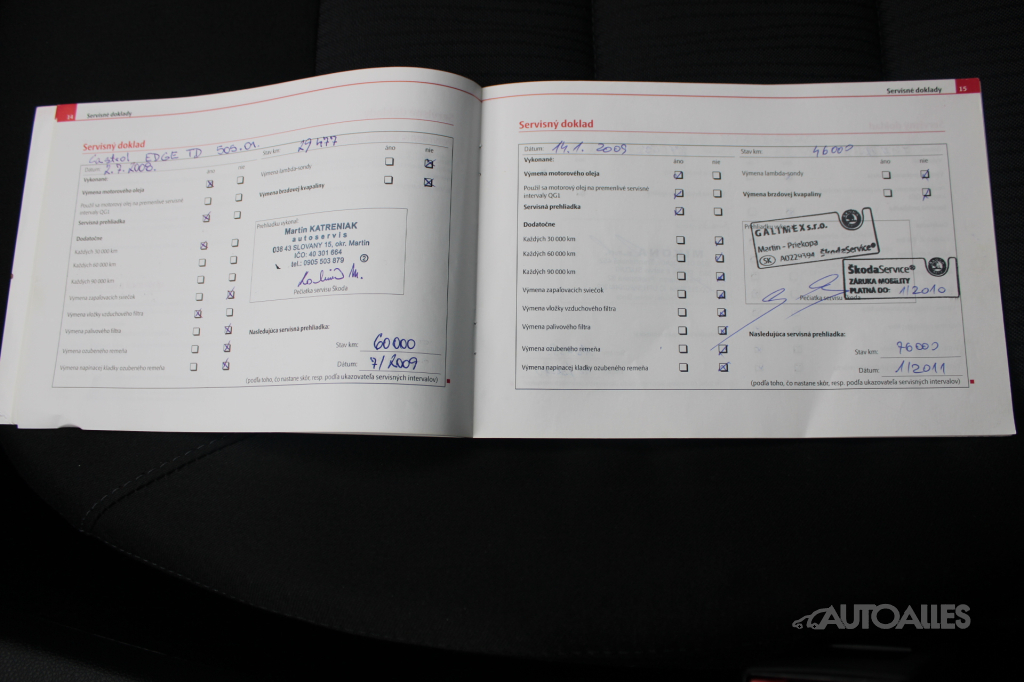 14 Servisné doklady
Servisný doklad
Castrol EDGE TD 505.01.
Dátum: 2.7.2008.
Stav km: 29477
Vykonané: áno nie
Výmena motorového oleja
Použil sa motorový olej na premenlivé servisné
intervaly QG1
Servisná prehliadka
Dodatočne
Každých 30 000 km
Každých 60 000 km
Každých 90 000 km
Výmena zapaľovacích sviečok
Výmena vložky vzduchového filtra
Výmena palivového filtra
Výmena ozubeného remeňa
Výmena napínacej kladky ozubeného remeňa
áno nie
Výmena lambda-sondy
Výmena brzdovej kvapaliny
Prehliadku vykonal:
Martin KATRENIAK
autoservis
038 43 SLOVANY 15, okr. Martin
IČO: 40 301 664
tel.: 0905 503 879
2
Pečiatka servisu Škoda
Nasledujúca servisná prehliadka:
Stav km: 60000
Dátum: 7/2009
(podľa toho, čo nastane skôr, resp. podľa ukazovateľa servisných intervalov)
Servisné doklady 15
Servisný doklad
Dátum: 14.1. 2009
Stav km: 46000
Vykonané: áno nie
Výmena motorového oleja
Použil sa motorový olej na premenlivé servisné
intervaly QG1
Servisná prehliadka
Dodatočne
Každých 30 000 km
Každých 60 000 km
Každých 90 000 km
Výmena zapaľovacích sviečok
Výmena vložky vzduchového filtra
Výmena palivového filtra
Výmena ozubeného remeňa
Výmena napínacej kladky ozubeného remeňa
áno nie
Výmena lambda-sondy
Výmena brzdovej kvapaliny
Prehliadku vykonal:
GALIMEX s.r.o.
Martin - Priekopa
SK ŠkodaService
ŠkodaService
ZÁRUKA MOBILITY
PLATNÁ DO: 1/2010
Pečiatka servisu Škoda
Nasledujúca servisná prehliadka:
Stav km: 76000
Dátum: 1/2011
(podľa toho, čo nastane skôr, resp. podľa ukazovateľa servisných intervalov)
AUTOALLES